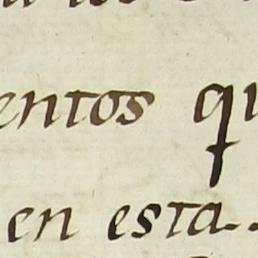 entos qu
en esta..